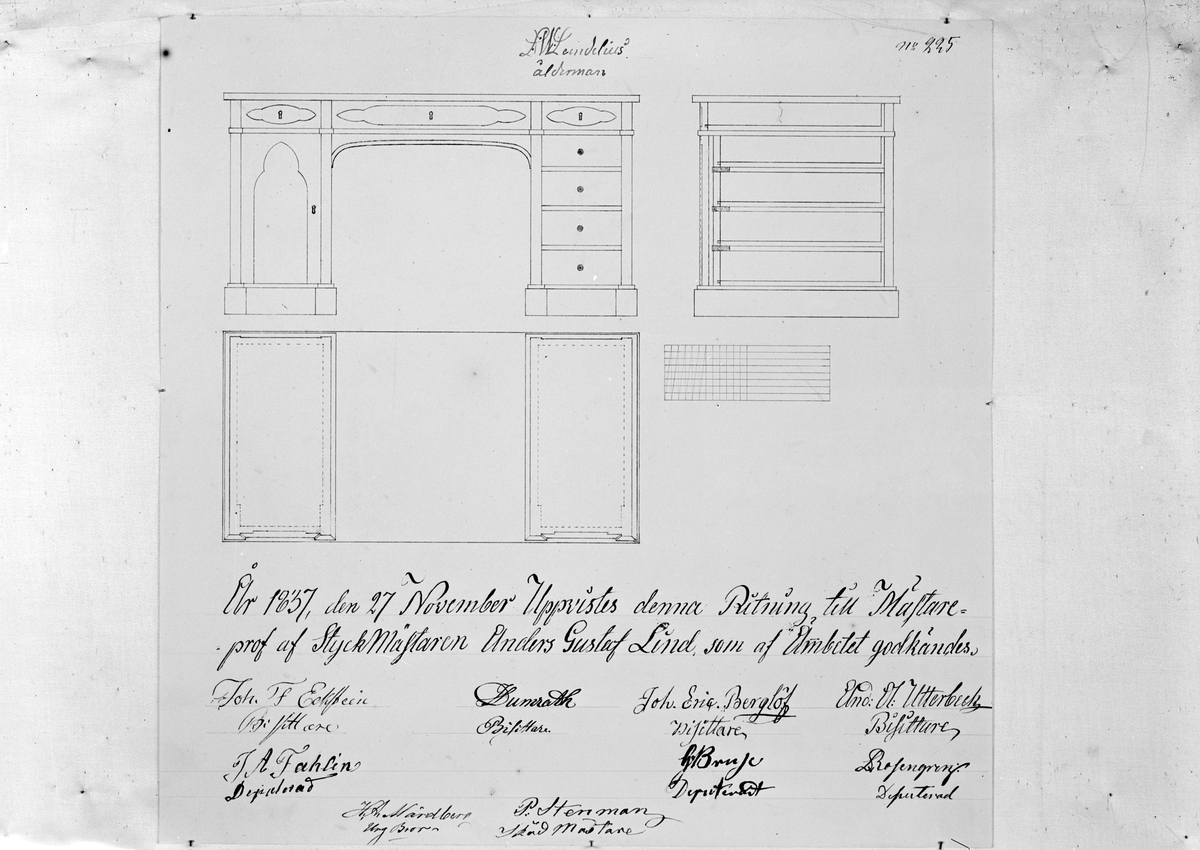 Lundelius
ålderman
no 225
År 1837, den 27 November Uppvistes denna Ritning till Mästare-
prof af StyckMästaren Anders Gustaf Lind, som af Ämbetet godkändes.
Joh. F Eckstein Dumrath Joh. Eric. Berglöf And: A: Utterbeck
Bisittare Bisittare. Bisittare Bisittare
J A Fahlin Bruse Rosengren
Deputerad Deputerad Deputerad
Nordberg P. Stenman
Ung Broder Skåd Mästare